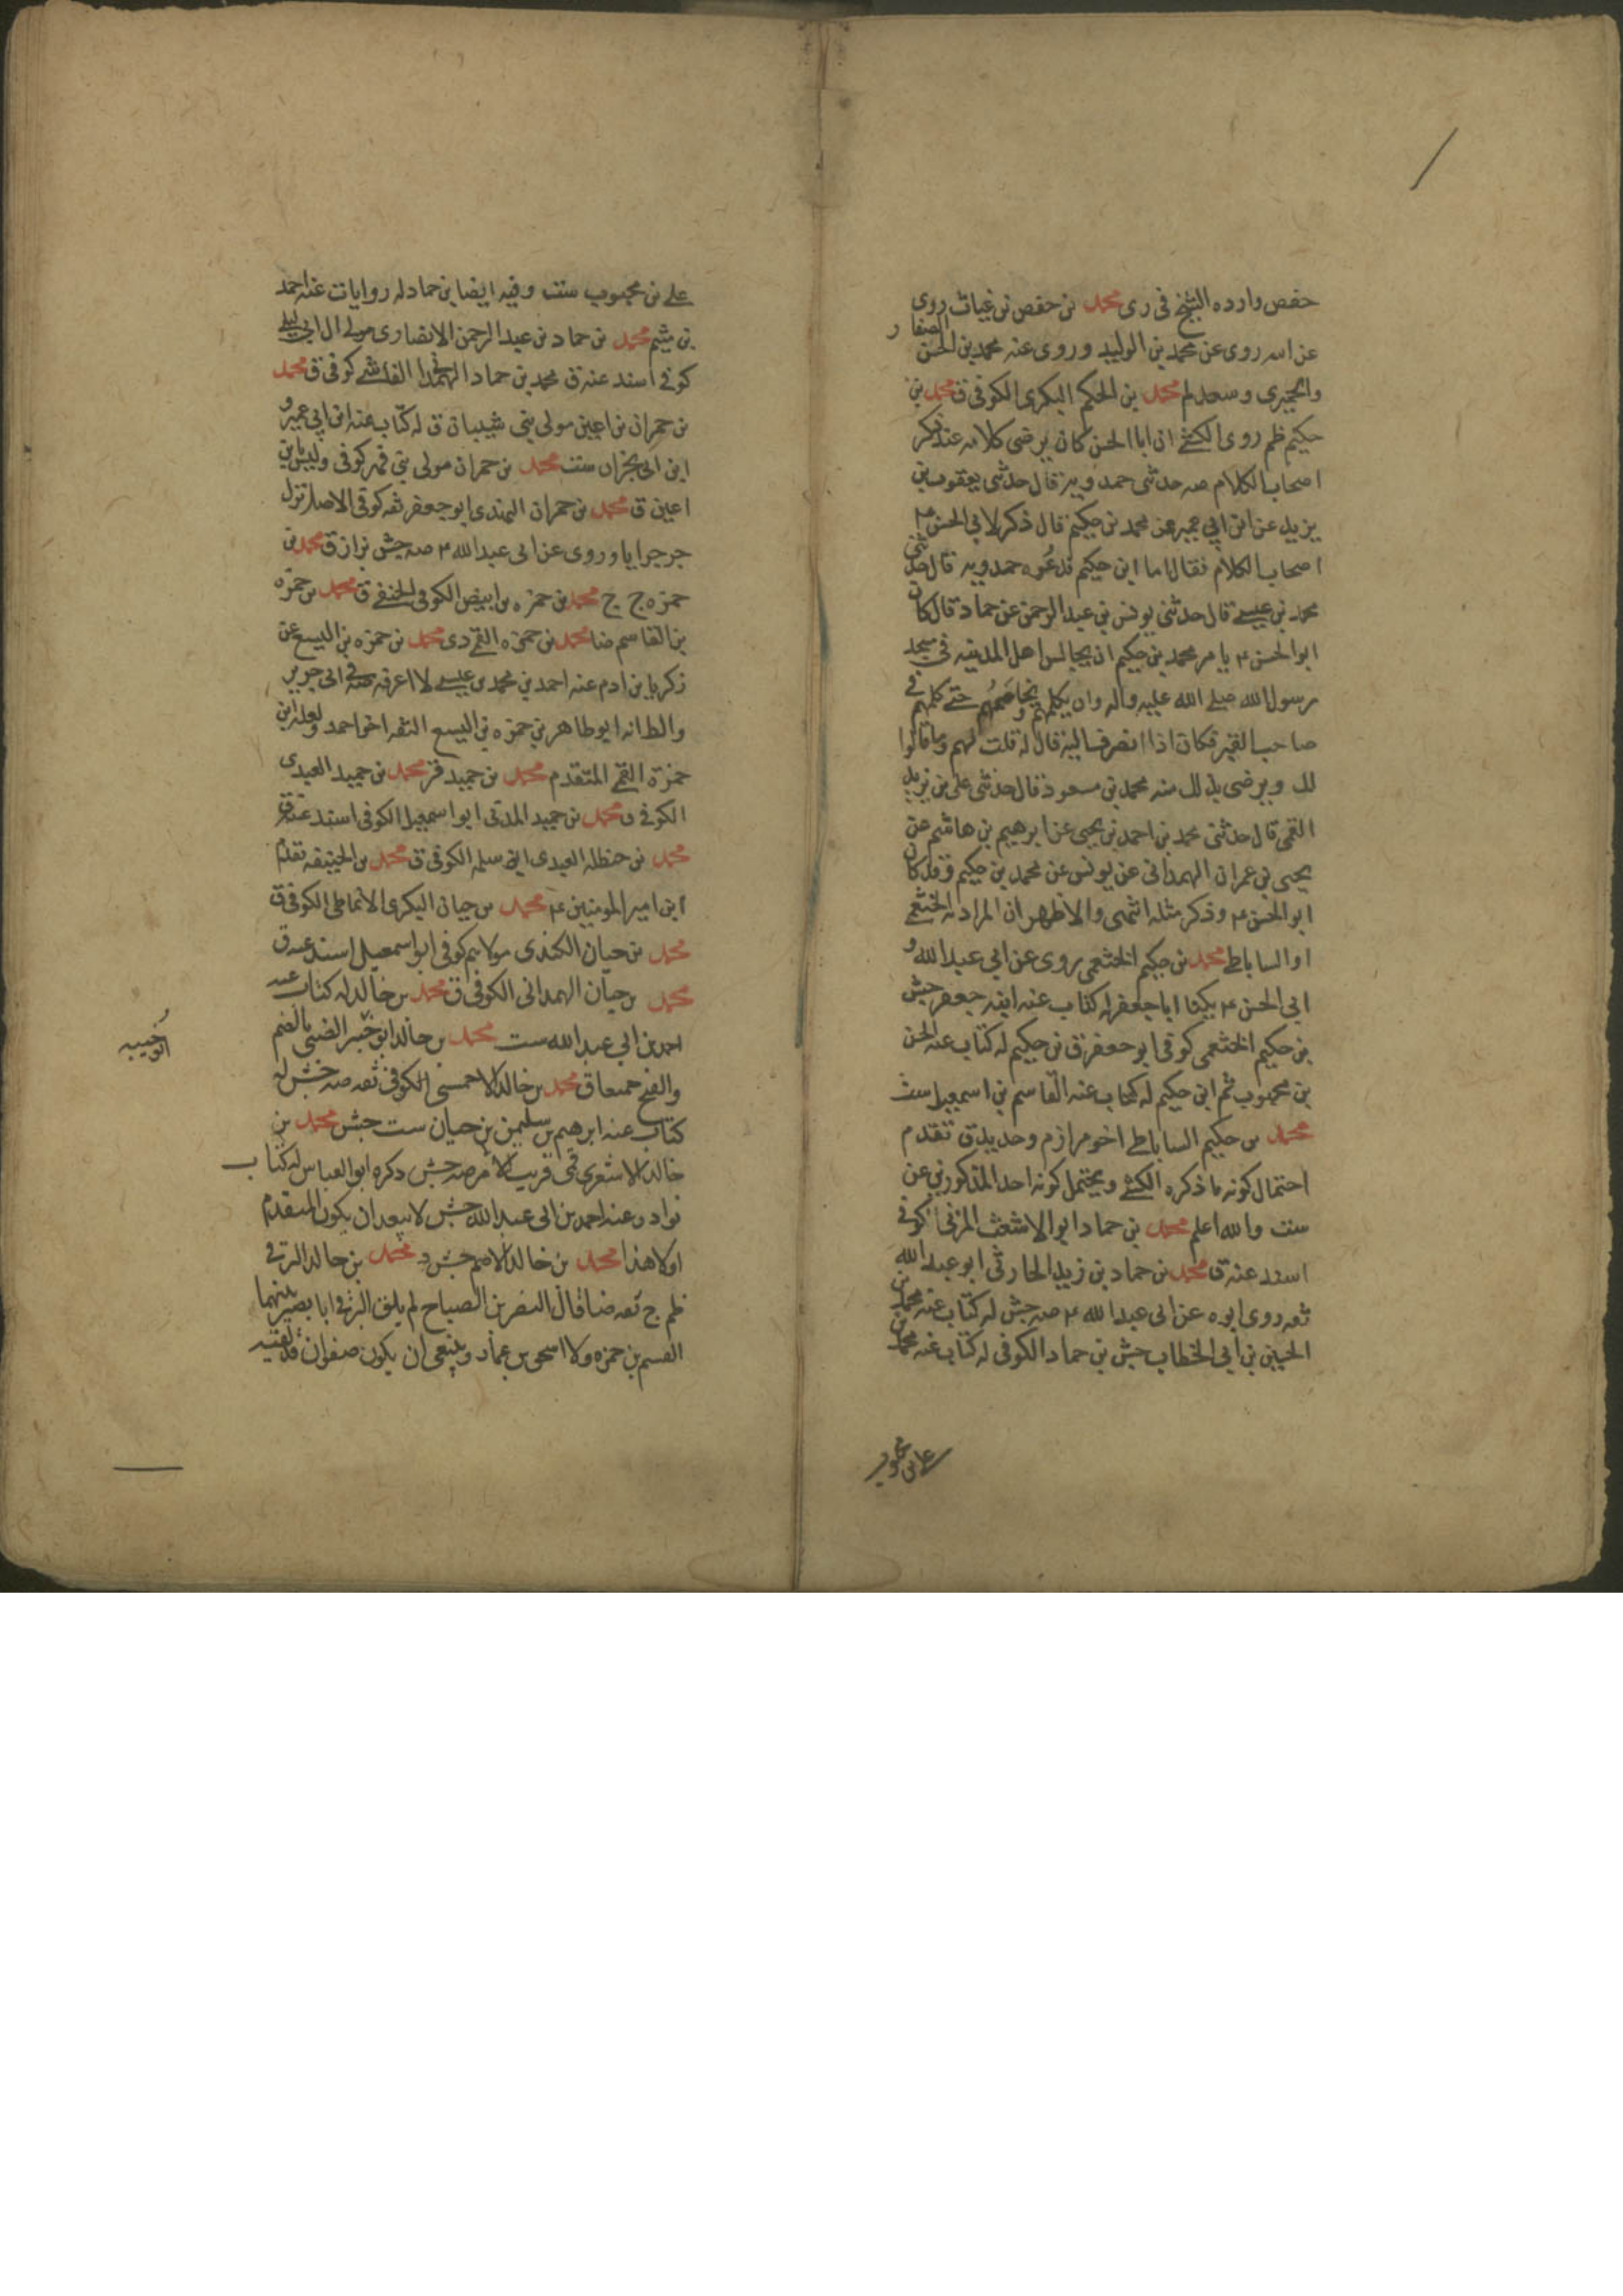 حفص وارده الشيخ في ري محمد بن حفص بن غياث روي
عن اسه روى عن محمد بن الوليد وروى عنه محمد بن الحسن الصفار
والحميري وسعد لم محمد بن الحكم البكري الكوفي ق محمد بن
حكيم ظم روى الكشي ان ابا الحسن كان يرضى كلامه عند ذكر
اصحاب الكلام صه حدثني حمدويه قال حدثني يعقوب بن
يزيد عن ابن ابي عمير عن محمد بن حكيم قال ذكر لابي الحسن ع
اصحاب الكلام فقال اما ابن حكيم فدعوه حمدويه قال حدثني
محمد بن عيسى قال حدثني يونس بن عبد الرحمن عن حماد قال كان
ابو الحسن ع يامر محمد بن حكيم ان يجالس اهل المدينه في مسجد
رسول الله صلى الله عليه واله وان يكلمهم ويخاصمهم حتى كلمهم في
صاحب القبر فكان اذا انصرف اليه قال له قلت لهم وما قالوا
لك ويرضى بذلك منه محمد بن مسعود قال حدثني علي بن يزيد
القمي قال حدثني محمد بن احمد بن يحيى عن ابرهيم بن هاشم عن
يحيى بن عمران الهمداني عن يونس عن محمد بن حكيم وقد كان
ابو الحسن ع وذكر مثله انتهى والاظهر ان المراد به الخثعمي
او الساباطي محمد بن حكيم الخثعمي روى عن ابي عبد الله و
ابي الحسن ع يكنا ابا جعفر له كتاب عنه ابنه جعفر جش
بن حكيم الخثعمي كوفي ابو جعفر ق بن حكيم له كتاب عنه الحسن
بن محبوب ثم ابن حكيم له كتاب عنه القاسم بن اسمعيل ست
محمد بن حكيم الساباطي اخو مرازم وحديد ق تقدم
احتمال كونه ما ذكره الكشي ويحتمل كونه احد المذكورين عن
ست والله اعلم محمد بن حماد ابو الاشعث المزني كوفي
اسند عنه ق محمد بن حماد بن زيد الحارثي ابو عبد الله
ثقه روى ابوه عن ابي عبد الله ع صه جش له كتاب عنه محمد بن
الحسين بن ابي الخطاب جش بن حماد الكوفي له كتاب عنه محمد بن
علي بن محبوب
علي بن محبوب ست وفيه ايضا بن حماد له روايات عنه احمد
بن ميثم محمد بن حماد بن عبد الرحمن الانصاري مولى ال ابي ليلى
كوفي اسند عنه ق محمد بن حماد الهمداني الفائشي كوفي ق محمد
بن حمران بن اعين مولى بني شيبان ق له كتاب عنه ابن ابي عمير و
ابن ابي نجران ست محمد بن حمران مولى بني فهر كوفي وليس بابن
اعين ق محمد بن حمران النهدي ابو جعفر ثقه كوفي الاصل نزل
جرجرايا وروى عن ابي عبد الله ع صه جش بزاز ق محمد بن
حمزه ج ج محمد بن حمزه بن ابيض الكوفي الحنفي ق محمد بن حمزه
بن القاسم ضا محمد بن حمزه القمي دي محمد بن حمزه بن اليسع عن
زكريا بن ادم عنه احمد بن محمد بن عيسى لا اعرفه في ابي جرير
والظانه ابو طاهر بن حمزه بن اليسع الثقه اخو احمد ولعله ابن
حمزة القمي المتقدم محمد بن حميد قر محمد بن حميد العبدي
الكوفي ق محمد بن حميد المدني ابو اسمعيل الكوفي اسند عنه ق
محمد بن حنظله العبدي ابن سلمه الكوفي ق محمد بن الحنيفه تقدم
ابن امير المومنين ع محمد بن حيان البكري الانماطي الكوفي ق
محمد بن حيان الكندي مولاهم كوفي ابو اسمعيل اسند عنه ق
محمد بن حيان الهمداني الكوفي ق محمد بن خالد له كتاب عنه
احمد بن ابي عبد الله ست محمد بن خالد ابو خبير الضبي بالضم
ابو خبيبه
والفتح جميعا ق محمد بن خالد الاحمسي الكوفي ثقه صه جش له
كتاب عنه ابرهيم بن سليمن بن حيان ست جش محمد بن
خالد الاشعري قمي قريب الامر صه جش ذكره ابو العباس له كتاب
نوادر عنه احمد بن ابي عبد الله جش لا يبعد ان يكون المتقدم
اولا هذا محمد بن خالد الاصم جش د محمد بن خالد البرقي
ظم ج ثقه ضا قال النضر بن الصباح لم يلق البرقي ابا بصير بينهما
القسم بن حمزه ولا اسحق بن عمار وينبغي ان يكون صفوان قد لقيه